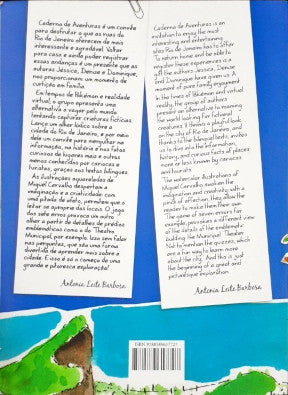 Caderno de Aventuras é um convite
para desfrutar o que as ruas do
Rio de Janeiro oferecem de mais
interessante e agradável. Voltar
para casa e ainda poder registrar
essas andanças é um presente que as
autoras Jéssica, Denise e Dominique,
nos proporcionam: um momento de
curtição em família.
Em tempos de Pokémon e realidade
virtual, o grupo apresenta uma
alternativa a vagar pelo mundo
tentando capturar criaturas fictícias.
Lança um olhar lúdico sobre a
cidade do Rio de Janeiro, e por meio
dele um convite para mergulhar na
informação, na história e nos fatos
curiosos de lugares mais e outros
menos conhecidos por cariocas e
turistas, graças aos textos bilíngues.
As ilustrações aquareladas de
Miguel Carvalho despertam a
imaginação e a criatividade com
uma pitada de afeto, permitem que o
leitor se aproprie dos locais. O jogo
dos sete erros provoca um outro
olhar a partir de detalhes de prédios
emblemáticos como o do Theatro
Municipal, por exemplo. Isso sem falar
nas perguntas, que são uma forma
divertida de aprender mais sobre a
cidade. E isso é só o começo de uma
grande e pitoresca exploração!
Antonia Leite Barbosa
Caderno de Aventuras is an
invitation to enjoy the most
interesting and entertaining
sites Rio de Janeiro has to offer.
To return home and be able to
register these experiences is a
gift the authors Jessica, Denise
and Dominique have given us. A
moment of pure family enjoyment.
In the times of Pokémon and virtual
reality, the group of authors
present an alternative to roaming
the world looking for fictional
creatures. It throws a playful look
on the city of Rio de Janeiro, and
thanks to the bilingual texts, invites
us to dive into the information,
history, and curious facts of places
more or less known by cariocas
and tourists.
The watercolor illustrations of
Miguel Carvalho awaken the
imagination and creativity with a
pinch of affection, they allow the
reader to make them their own.
The game of seven errors for
example, provokes a different view
of the details of the emblematic
building the Municipal Theater.
Not to mention the quizzes, which
are a fun way to learn more
about the city. And this is just
the beginning of a great and
picturesque exploration!
Antonia Leite Barbosa